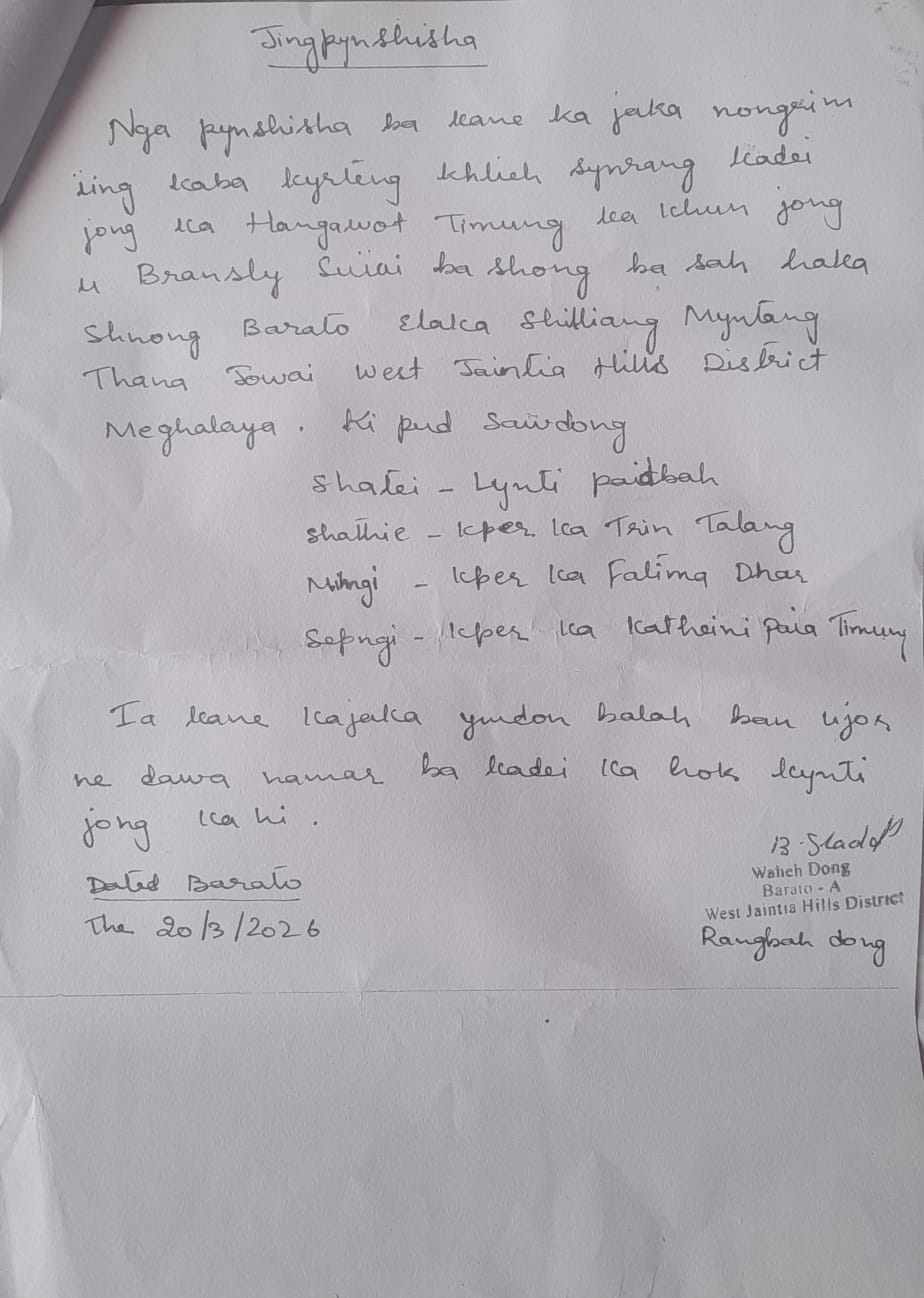 Jingpynshisha
Nga pynshisha ba kane ka jaka nongrim
ïing kaba kyrteng khlieh synrang kadei
jong ka Hangawot Timung ka khun jong
u Bransly Suiai ba shong ba sah haka
Shnong Barato Elaka Shilliang Myntang
Thana Jowai West Jaintia Hills District
Meghalaya. Ki pud sawdong
Shatei - Lynti paidbah
Shathie - Kper ka Trin Talang
Mihngi - Kper ka Fatima Dhar
Sepngi - Kper ka Katheini Paia Timung
Ia kane kajaka ymdon balah ban ujor
ne dawa namar ba kadei ka hok kynti
jong ka hi.
Dated Barato
The 20/3/2026
Waheh Dong
Barato - A
West Jaintia Hills District
Rangbah dong